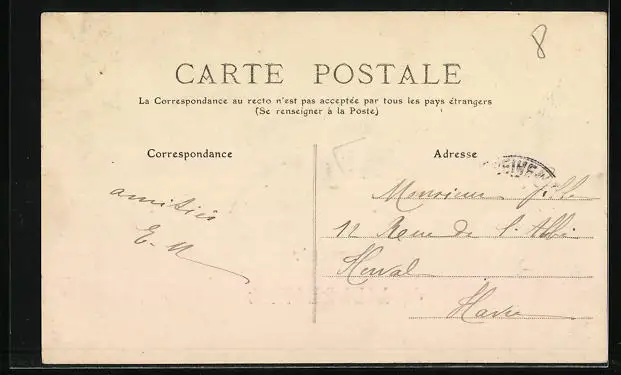 8
CARTE POSTALE
La Correspondance au recto n'est pas acceptée par tous les pays étrangers
(Se renseigner à la Poste)
Correspondance
Adresse
amitiés
E. M
Monsieur
12 Rue de l'Abbé
Herval
Havre